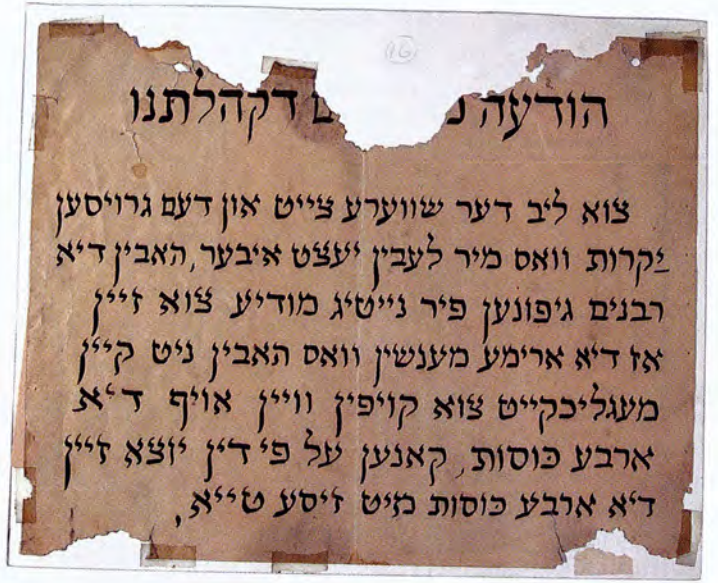 הודעה דקהלתנו
צוא ליב דער שווערע צייט און דעם גרויסען
יקרות וואס מיר לעבין יעצט איבער, האבין דיא
רבנים גיפונען פיר נייטיג מודיע צוא זיין
אז דיא ארימע מענשין וואס האבין ניט קיין
מעגליכקייט צוא קויפין וויין אויף דיא
ארבע כוסות, קאנען על פי דין יוצא זיין
דיא ארבע כוסות מיט זיסע טייא,